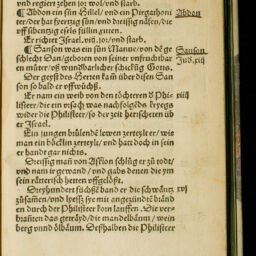 vnd regiert zehen jor wol/vnd starb.
¶ Abdon ein sůn Hillel/vnd ein Pirgathoni
ter/der hat fyertzig sůn/vnd dreissig näfen/die
vff sibenzig esels füllin guten.
Er richtet Israel.viij.jor/vnd starb.
¶ Sanson was ein sůn Manue/von dē ge
schlecht Dan/geboren von seiner vnfruchtbar
en můter/vß wundbarlicher schickūg Gottes.
Der geyst des Herren kam über disen San
son so bald er vffwůchß.
Er nam ein weib von den töchteren ð Phi
lister/die ein vrsach was nachfolgēds kryegs
wider die Philister/so der zeit herscheten üb
er Israel.
Ein jungen brülendē lewen zerteylt er/wie
man ein böcklin zerteylt/vnd hart doch in sein
er handt gar nichts.
Dreissig man von Ascalon schlůg er zů todt/
vnd nam ir gewand/vnd gabs denen die ym
sein räterisch hetten vffgelößt.
Dreyhundert füchß band er die schwäntz
zůsamen/vnd hetß sye mit angezündtē bränd
en durch der Philister korn lauffen. Sie ver-
branten das getreyd/die mandelbäum/wein
berg vnnd ölbäum. Deßhalben die Philister
Abdon
Sanson
Jud.xiij
xiiij
xv